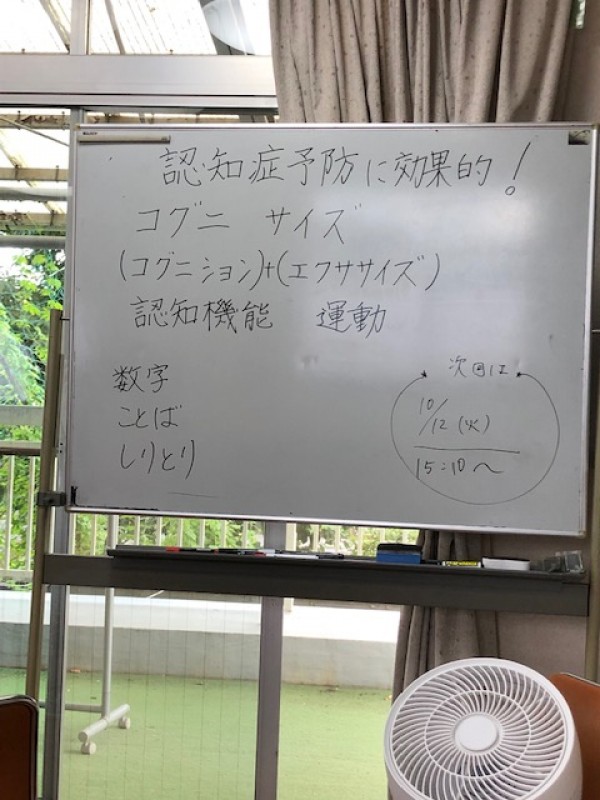 認知症予防に効果的!
コグニ サイズ
(コグニション)+(エクササイズ)
認知機能 運動
数字
ことば
しりとり
次回は
10/12(火)
15:10~